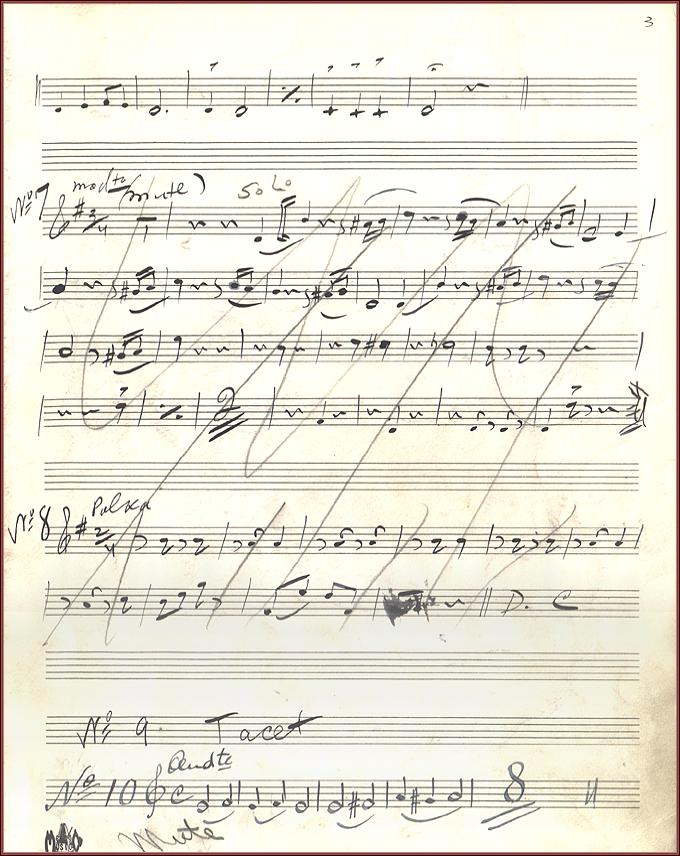 3
No 7 modto (mute) Solo
2/4
2
No 8 Polka
2/4
D. C
No 9. Tacet
No 10 Andte
C 8
Mute